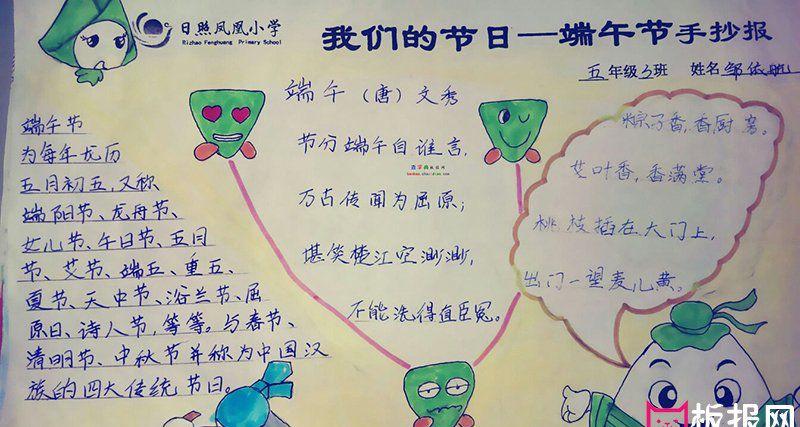 日照凤凰小学
Rizhao Fenghuang Primary School
我们的节日—端午节手抄报
五年级3班 姓名
端午节
为每年农历
五月初五,又称
端阳节、龙舟节、
女儿节、午日节、五月
节、艾节、端五、重五、
夏节、天中节、浴兰节、屈
原日、诗人节,等等。与春节、
清明节、中秋节并称为中国汉
族的四大传统节日。
端午(唐)文秀
节分端午自谁言,
万古传闻为屈原;
堪笑楚江空渺渺,
不能洗得直臣冤。
粽子香,香厨房。
艾叶香,香满堂。
桃枝插在大门上,
出门一望麦儿黄。
板报网